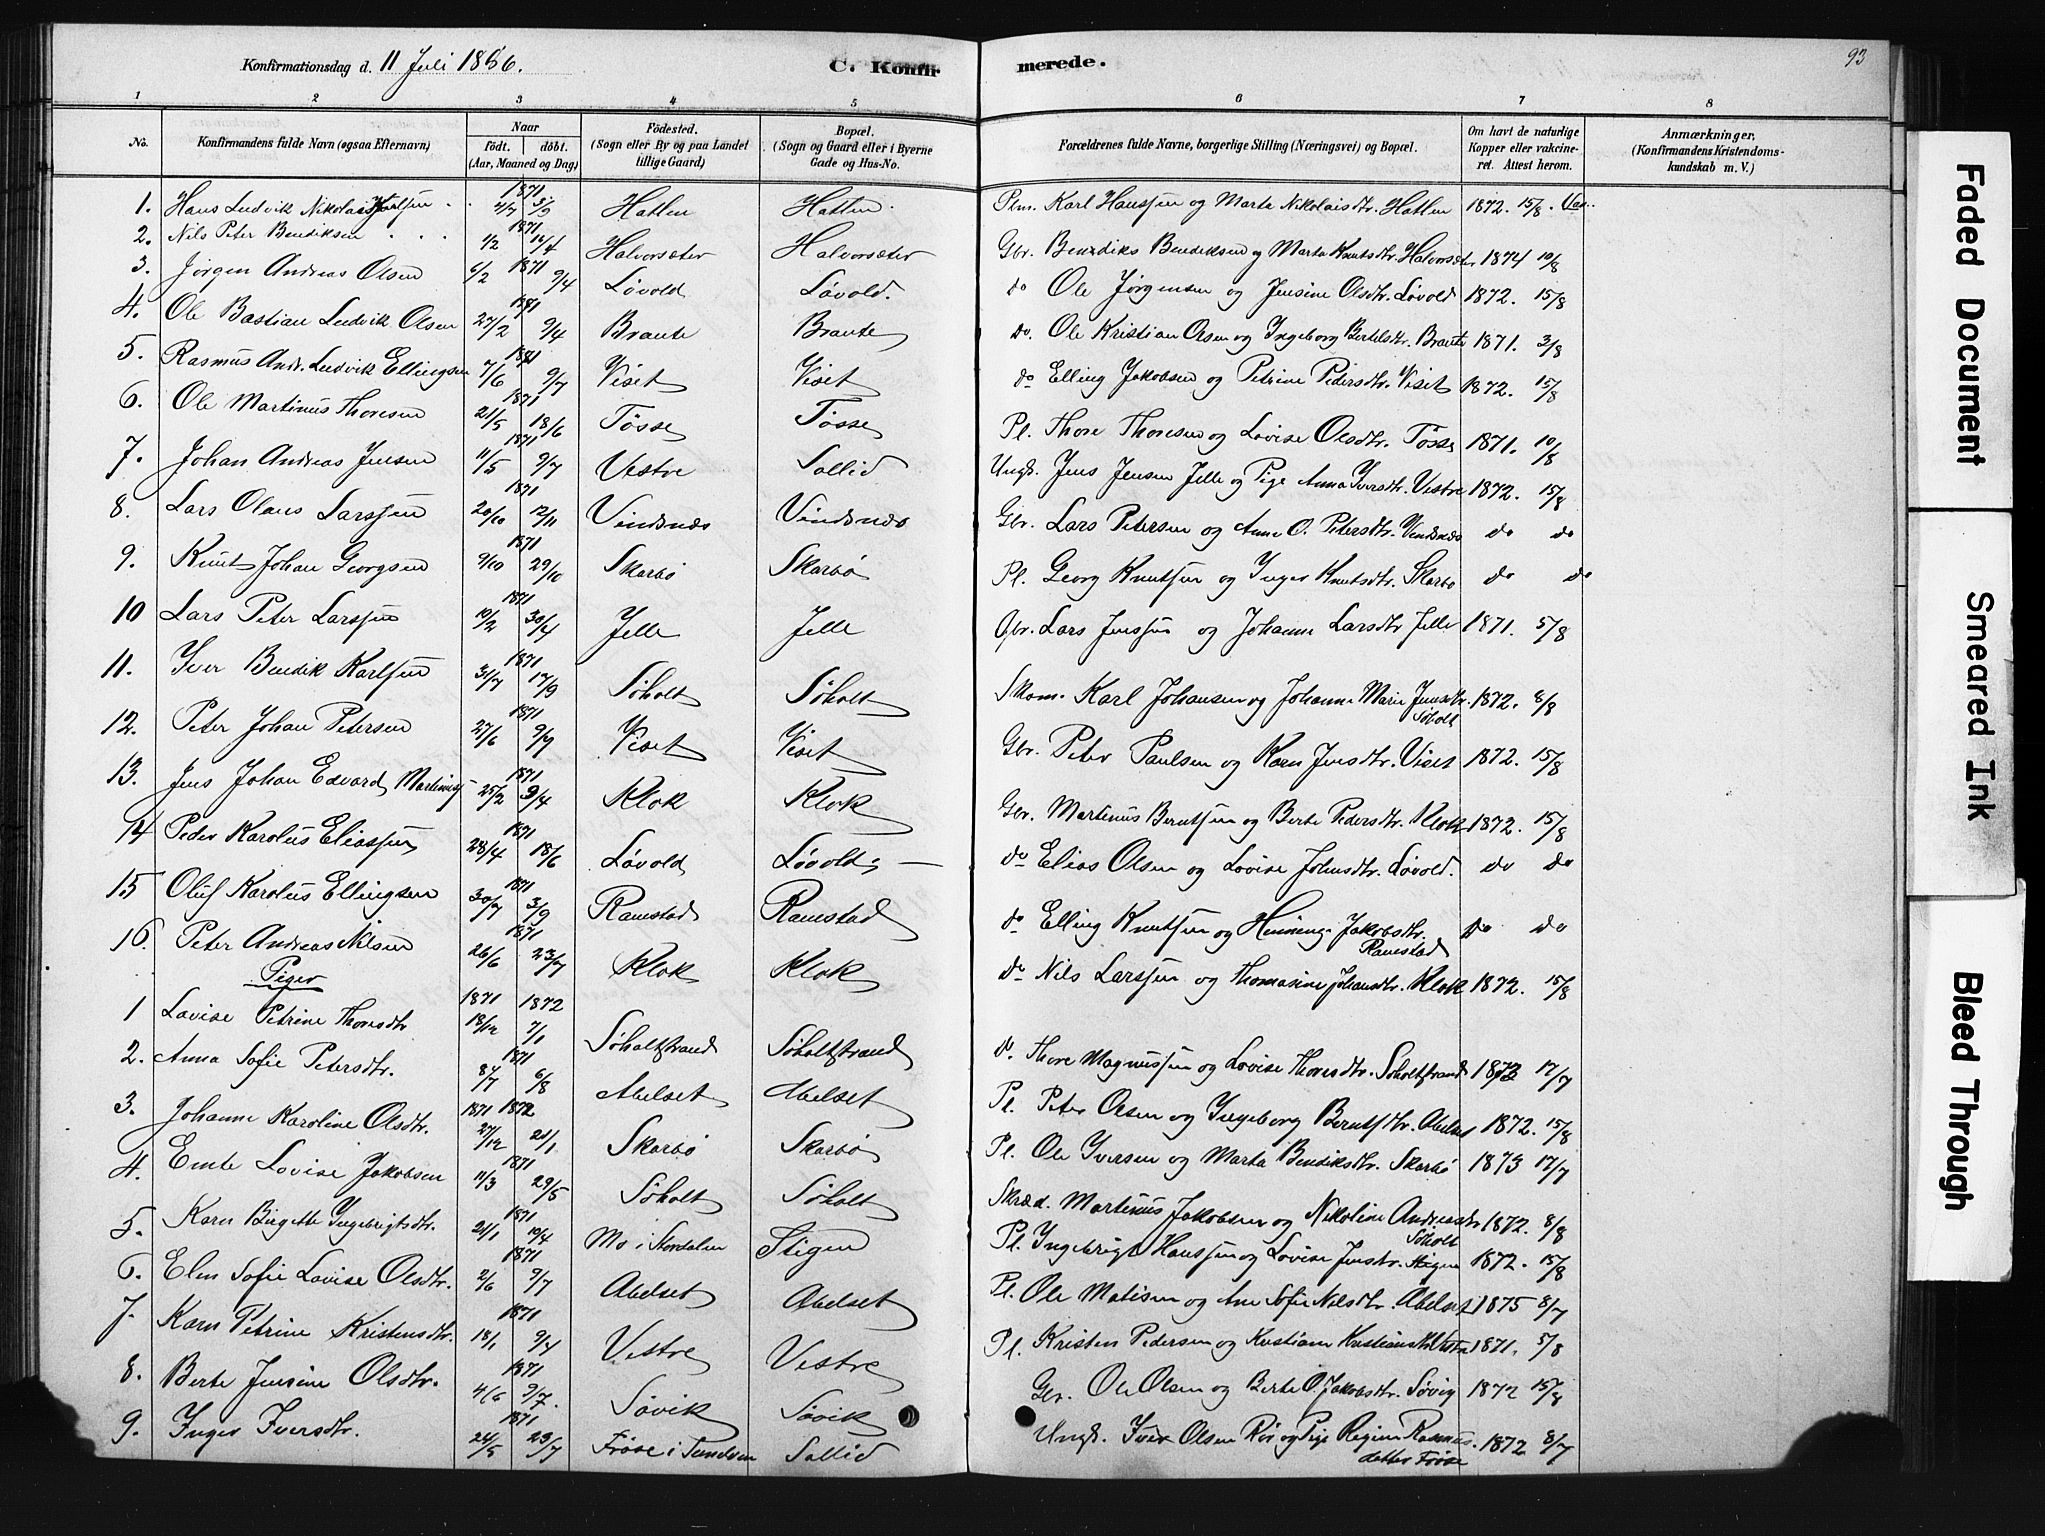 Konfirmationsdag d. 11 Juli 1886.
C. Konfirmerede.
93
1 2 3 4 5 6 7 8
No.
Konfirmandens fulde Navn (ogsaa Efternavn)
Naar
født. døbt.
(Aar, Maaned og Dag)
Fødested.
(Sogn eller By og paa Landet tillige Gaard)
Bopæl.
(Sogn og Gaard eller i Byerne Gade og Hus-No.
Forældrenes fulde Navne, borgerlige Stilling (Næringsvei) og Bopæl.
Om havt de naturlige Kopper eller vakcineret. Attest herom.
Anmærkninger,
(Konfirmandens Kristendomskundskab m. V.)
1. Hans Ludvik Nikolai Karlsen 1871 4/7 3/9 Hatlen Hatlen Plm. Karl Hanssen og Marta Nikolaisdtr. Hatlen 1872. 15/8.
2. Nils Peter Bendiksen 1871 1/2 16/4 Halvorsæter Halvorsæter Gbr. Bendiks Bendiksen og Marta Knutsdtr. Halvorsæter 1874 10/8
3. Jørgen Andreas Olsen 1871 6/2 9/4 Løvold Løvold. do Ole Jørgensen og Jensine Olsdtr. Løvold 1872. 15/8
4. Ole Bastian Ludvik Olsen 1871 27/2 9/4 Braute Braute do. Ole Kristian Olsen og Ingeborg Bertelsdtr. Braute 1871. 3/8
5. Rasmus Andr. Ludvik Ellingsen 1871 7/6 9/7 Viset Viset do Elling Jakobsen og Petrine Pedersdtr. Viset 1872. 15/8
6. Ole Martinus Thoresen 1871 21/5 18/6 Tøsse Tøsse Pl. Thore Thoresen og Lovise Olsdtr. Tøsse 1871. 10/8
7. Johan Andreas Jensen 1871 11/5 9/7 Vestre Sollid Ungk. Jens Jensen Jelle og Pige Anna Iversdtr. Vestre 1872. 15/8
8. Lars Olaus Larssen 1871 20/10 12/11 Vindsnæs Vindsnæs Gbr. Lars Petersen og Anne O. Petersdtr. Vindsnæs do do
9. Knut Johan Georgsen 1871 9/10 29/10 Skarbø Skarbø Pl. Georg Knutsen og Inger Knutsdtr. Skarbø do do
10 Lars Peter Larssen 1871 19/2 30/4 Jelle Jelle Gbr. Lars Jenssen og Johanne Larsdtr Jelle 1871. 5/8
11. Iver Bendik Karlsen 1871 31/7 17/9 Søholt Søholt Skom. Karl Johansen og Johanne Marie Jensdtr. Søholt 1872. 8/8
12. Peter Johan Petersen 1871 27/6 9/7 Viset Viset Gbr. Peter Paulsen og Karn Jensdtr. Viset 1872. 15/8
13. Jens Johan Edvard Martinus 1871 25/2 9/4 Klok Klok Gbr. Martinus Berntsen og Berte Pedersdtr. Klok 1872. 15/8
14 Peder Karolus Eliassen 1871 28/4 18/6 Løvold Løvold do Elias Olsen og Lovise Johnsdtr. Løvold. do do
15 Oluf Karolus Ellingsen 1871 30/7 3/9 Ramstad Ramstad do Elling Knutsen og Henninge Jakobsdtr. Ramstad do do
16. Peter Andreas Nilsen 1871 26/6 23/7 Klok Klok do Nils Larssen og Thomasine Johansdtr. Klok 1872. 15/8
Piger
1 Lovise Petrine Thoresdtr 1871 1872 18/12 7/1 Søholtstrand Søholtstrand do. Thore Magnussen og Lovise Thoresdtr. Søholtstrand 1873 17/7
2. Anna Sofie Petersdtr. 1871 24/7 6/8 Abelset Abelset Pl. Peter Olsen og Ingeborg Berntsdtr. Abelset 1872. 15/8
3. Johanne Karoline Olsdtr. 1871 1872 27/12 21/1 Skarbø Skarbø Pl. Ole Iversen og Marta Bendiksdtr. Skarbø 1873 17/7
4. Emte Lovise Jakobsen 1871 11/3 29/5 Søholt Søholt Skræd. Martinus Jakobsen og Nikoline Andreasdtr Søholt 1872. 8/8
5. Karn Birgette Ingebrigtsdtr. 1871 21/1 10/4 Mo i Stordalen Stigen Pl. Ingebrigt Hanssen og Lovise Jensdtr. Stigen 1872. 15/8
6. Elen Sofie Lovise Olsdtr. 1871 2/6 9/7 Abelset Abelset Pl. Ole Matisen og Ane Sofie Nilsdtr. Abelset 1875 8/7
7. Karn Petrine Kristensdtr. 1871 18/1 9/4 Vestre Vestre Pl. Kristen Pedersen og Kristiane Kristiansdtr Vestre 1871. 5/8
8. Berte Jensine Olsdtr. 1871 4/6 9/7. Søvik Søvik Gbr. Ole Olsen og Berte O. Jakobsdtr. Søvig 1872 15/8
9. Inger Iversdtr. 1871 24/5 23/7 Frøse i Sundven Sollid Ungk. Iver Olsen Røi og Pige Regine Rasmusdetter Frøse 1872 8/7
Faded Document
Smeared Ink
Bleed Through